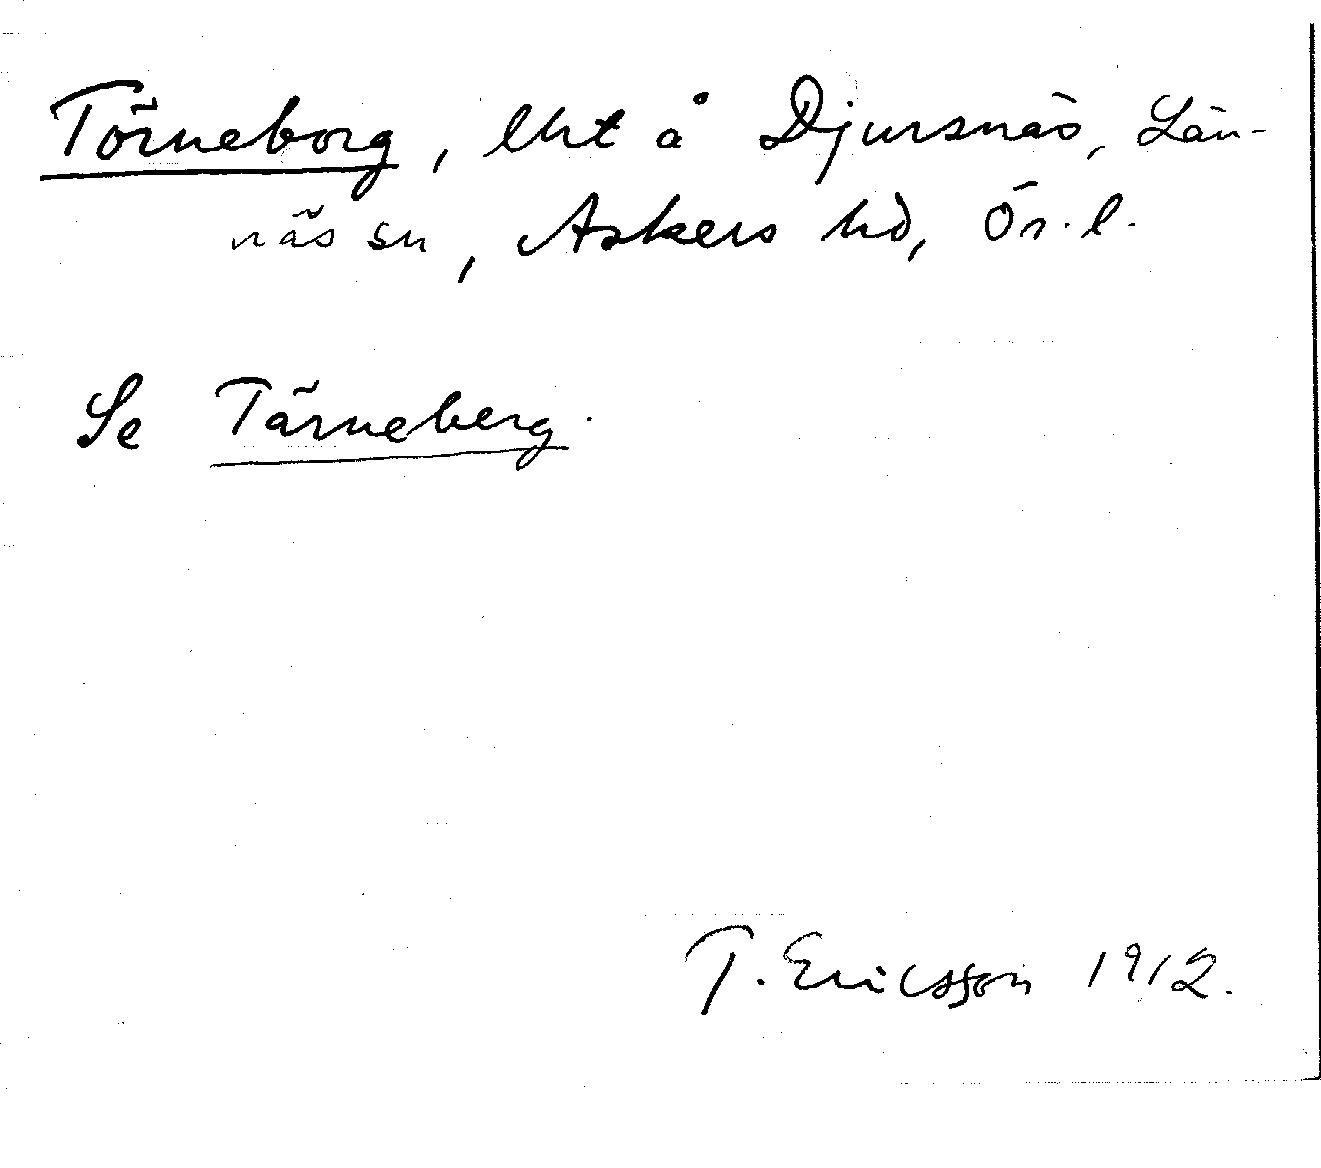 Törneborg, lht å Djursnäs, Län-
näs sn, Askers hd, Ör. l.
Se Tärneberg.
T. Ericsson 1912.